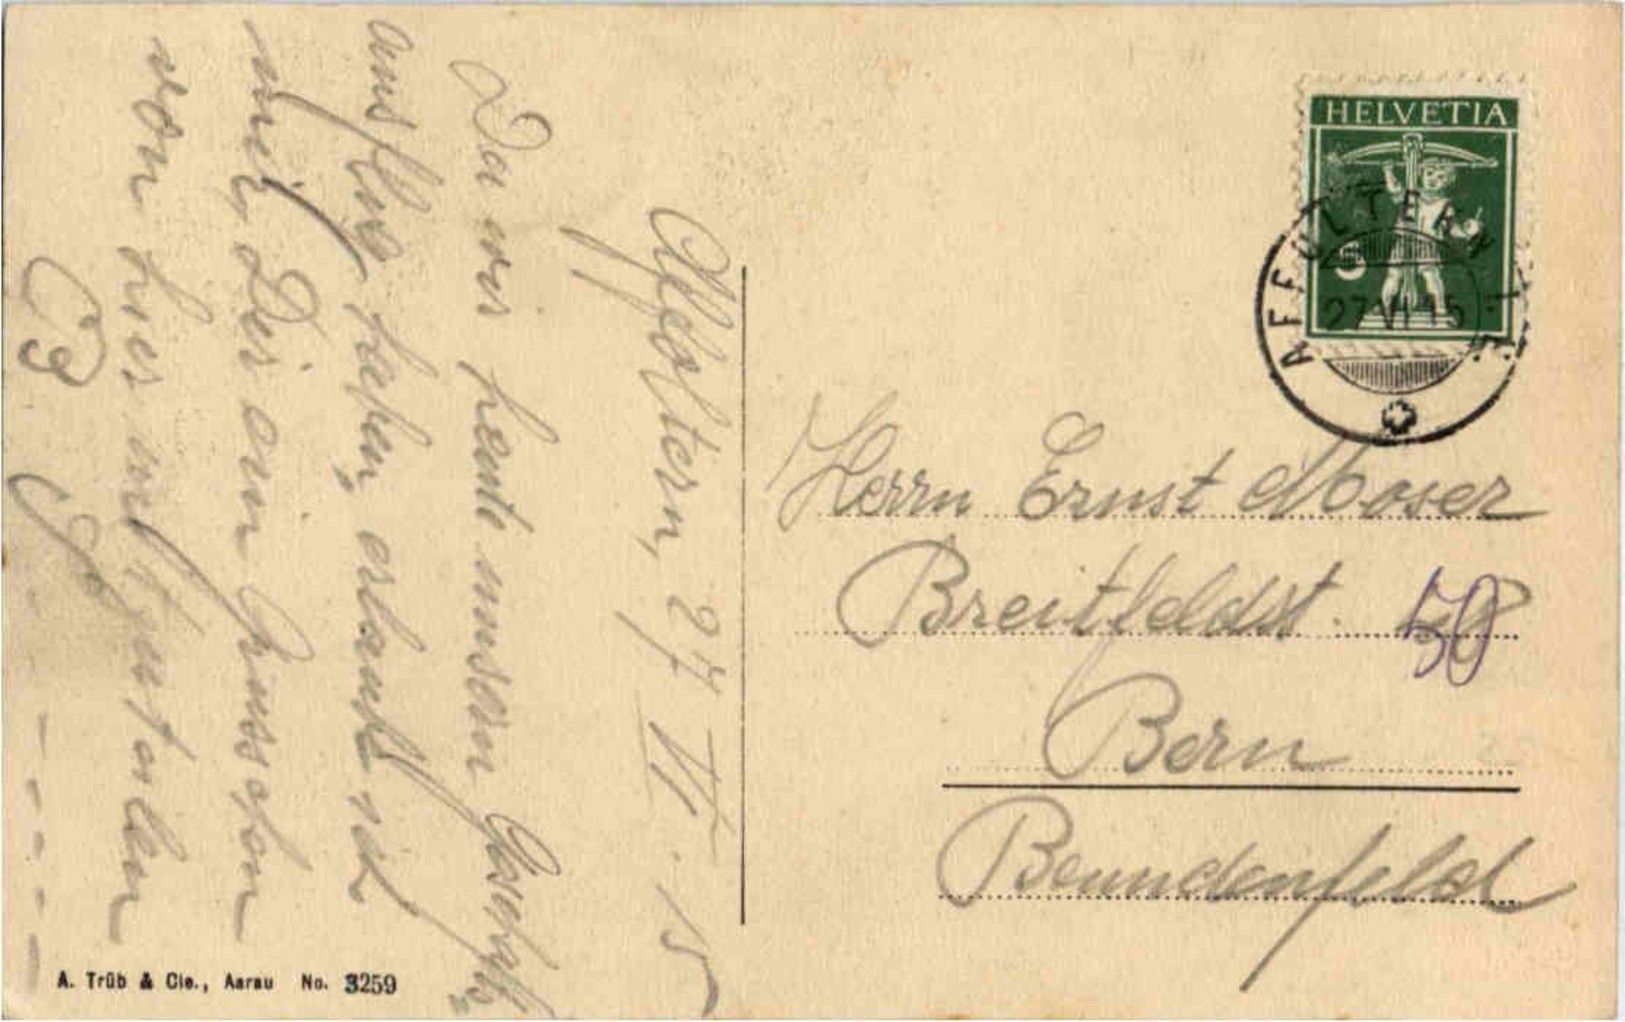 Affoltern, 27 VI. 15
Da wir heute unsern Geschäfts=
ausflug haben, erlaube ich
mir Dir ein Grüsschen
von hier mit zu teilen
HELVETIA
5
AFFOLTERN
27.VI.15
Herrn Ernst Moser
Breitfeldst. 50
Bern
Beundenfeld
A. Trüb & Cie., Aarau No. 3259